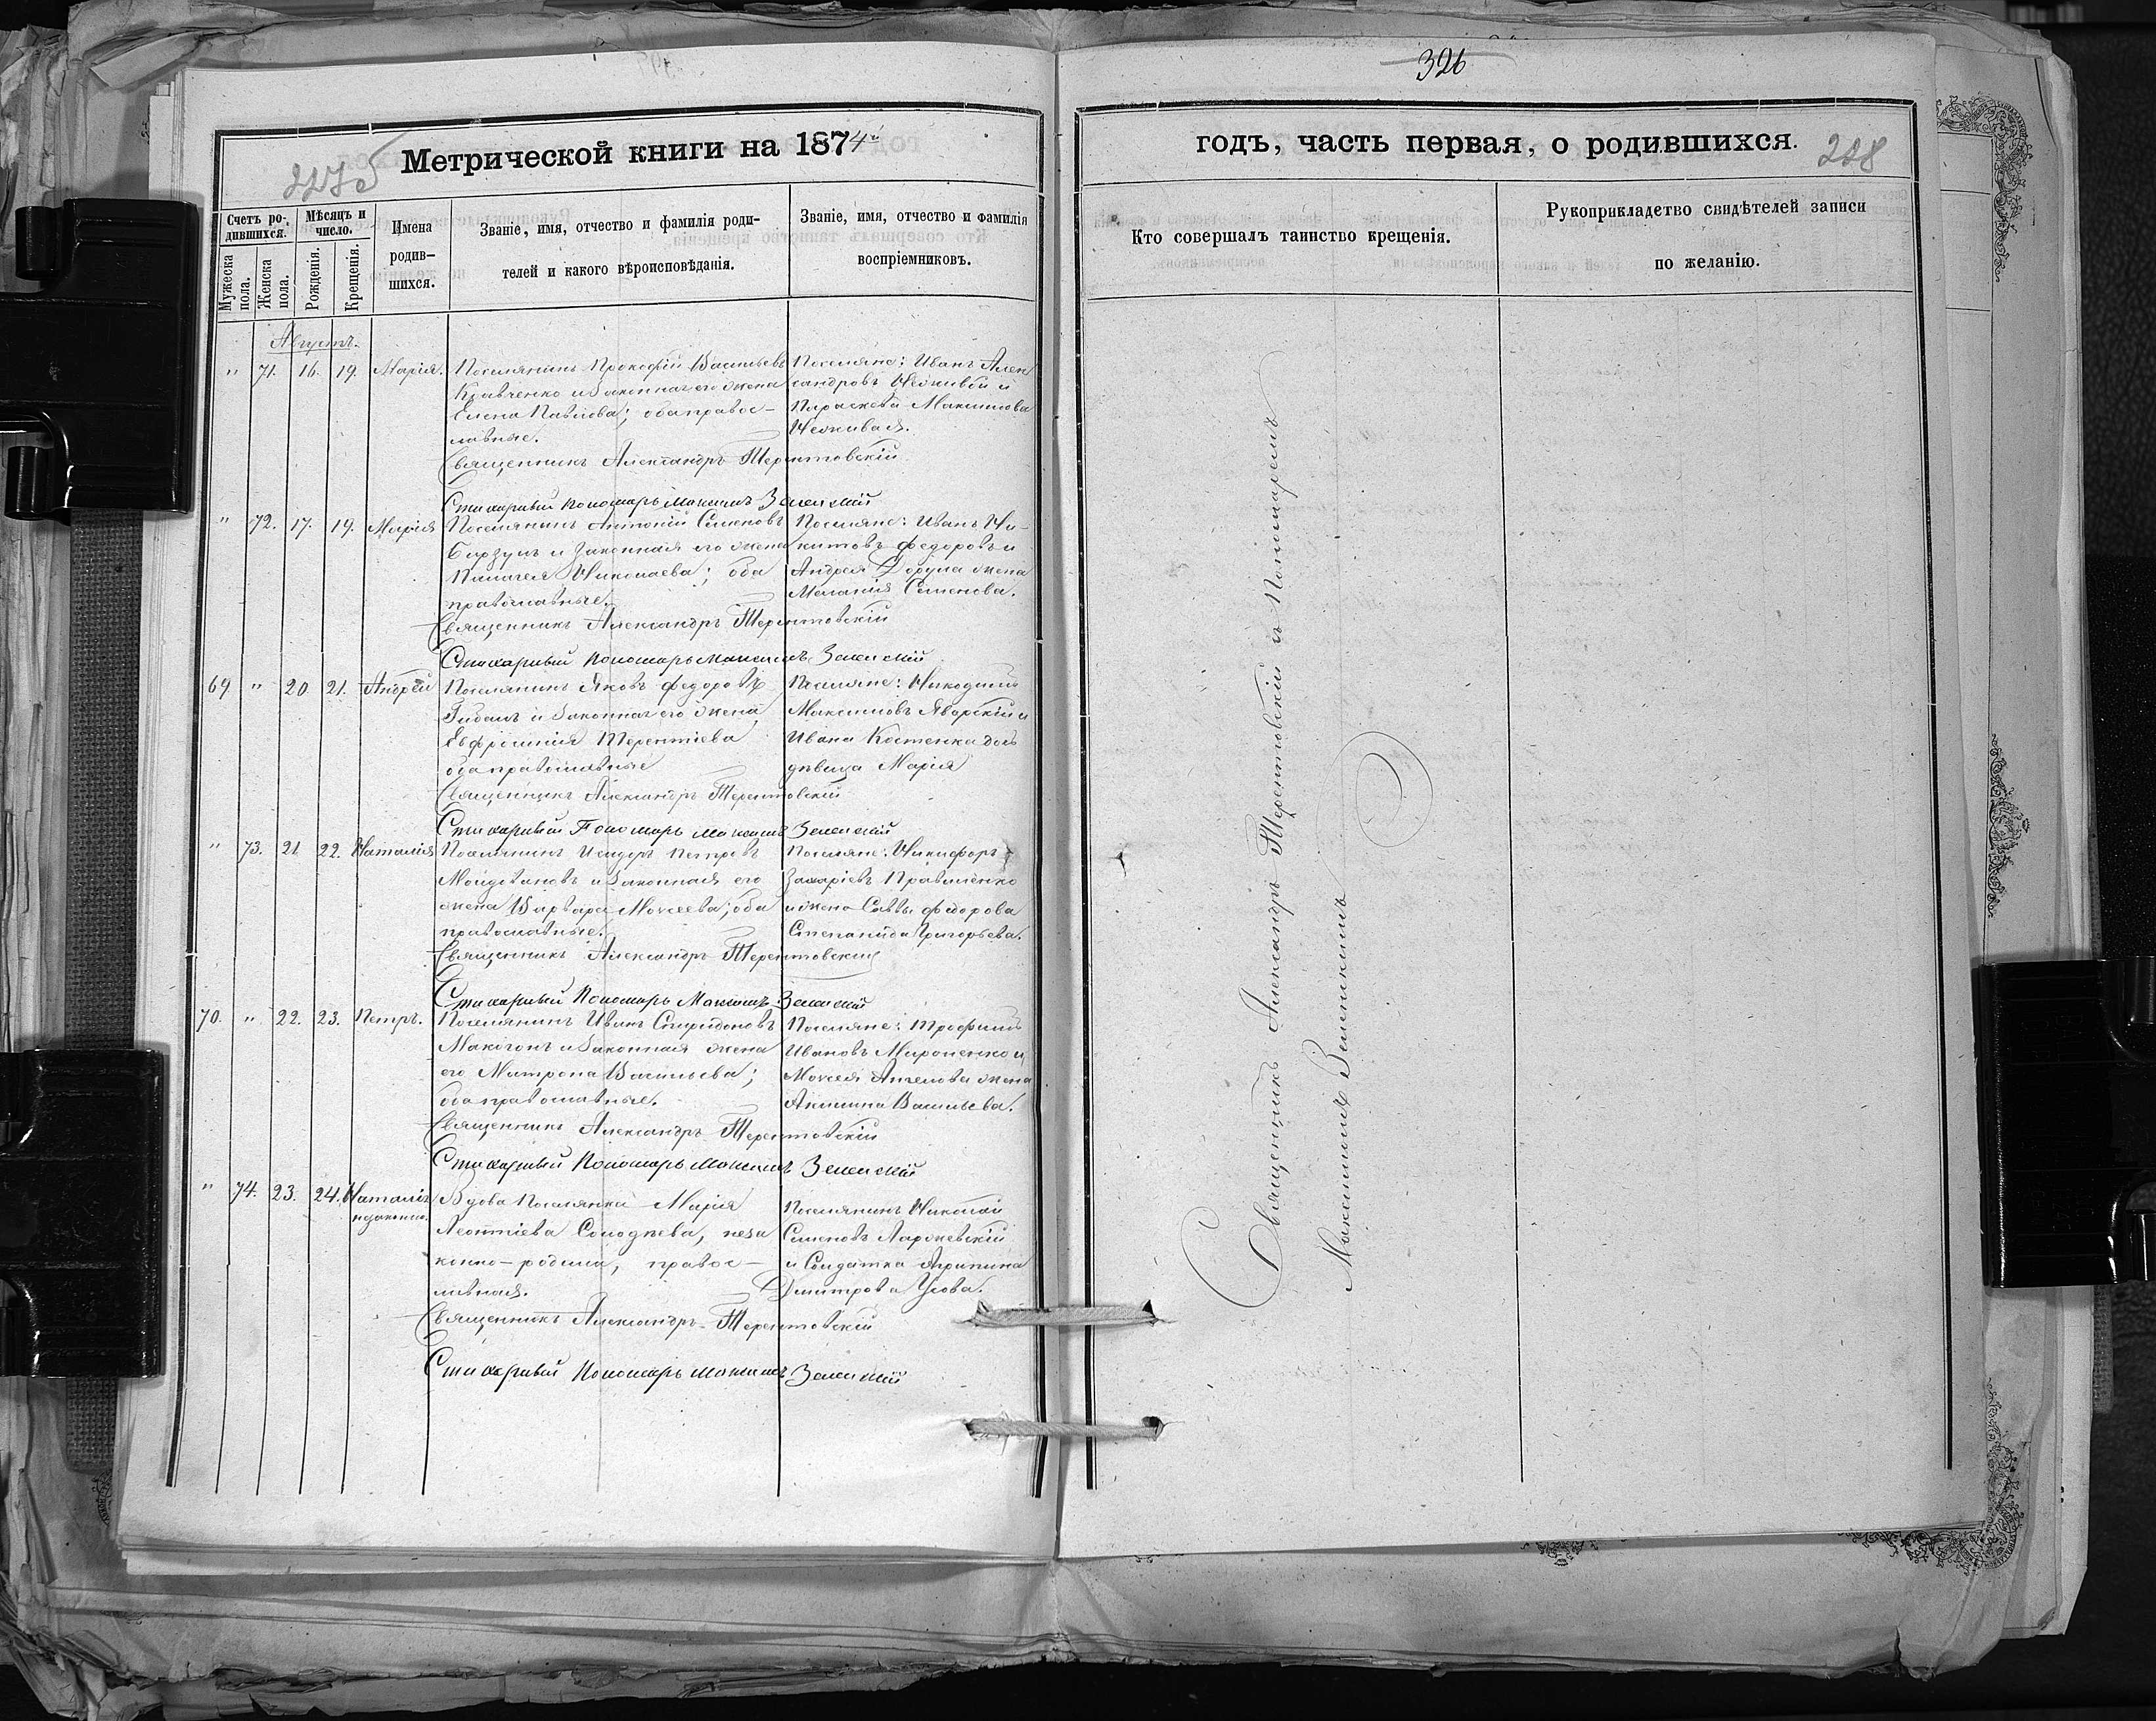 326
Метрической книги на 1874й
годъ, часть первая, о родившихся.
Счетъ ро-
дившихся.
Мужеска пола.
Женска пола.
Мѣсяцъ и
число.
Рожденія.
Крещенія.
Имена
родив-
шихся.
Званіе, имя, отчество и фамилія роди-
телей и какого вѣроисповѣданія.
Званіе, имя, отчество и фамилія
воспріемниковъ.
Кто совершалъ таинство крещенія.
Рукоприкладство свидѣтелей записи
по желанію.
Августъ.
" 71. 16. 19. Марія. Поселянинъ Прокофій Васильевъ Поселяне: Иванъ Алек
Кравченко и законная его жена сандровъ и
Елена Павлова; оба правос- Параскева Максимова
лавные.
Священникъ Александръ Терентовскій
Стихарный Пономарь Максимъ Зеленскій
" 72. 17. 19. Марія Поселянинъ Антоній Семеновъ Поселяне: Иванъ Ни-
и законная его жена китовъ Федоровъ и
Пелагея Николаева; оба Андрея жена
православные. Меланія Семенова.
Священникъ Александръ Терентовскій
Стихарный Пономарь Максимъ Зеленскій
69 " 20. 21. Андрей Поселянинъ Яковъ Федоровъ Поселяне: Никодимъ
и законная его жена Максимовъ Яворскій и
Евфросинія Терентіева Ивана Костенка доч
оба православные дѣвица Марія
Священникъ Александръ Терентовскій
Стихарный Пономарь Максимъ Зеленскій
" 73. 21 22. Наталія Поселянинъ Исидоръ Петровъ Поселяне: Никифоръ
Молдовановъ и законная его Захаріевъ
жена Варвара Моисеева; оба и жена Саввы Федорова
православные. Степанида Григорьева.
Священникъ Александръ Терентовскій
Стихарный Пономарь Максимъ Зеленскій
70. " 22. 23. Петръ. Поселянинъ Иванъ Спиридоновъ Поселяне: Трофимъ
Макогонъ и законная жена Ивановъ Мироненко и
его Матрона Васильева; Моисея Ангелова жена
оба православные. Акилина Васильева.
Священникъ Александръ Терентовскій
Стихарный Пономарь Максимъ Зеленскій
" 74. 23. 24. Наталія Вдова Поселянка Марія Поселянинъ Николай
незаконно. Леонтіева Солоднева, неза Семеновъ
конно-родила, правос- и Солдатка Агрипина
лавная. Дмитрова Усова.
Священникъ Александръ Терентовскій
Стихарный Пономарь Максимъ Зеленскій
Священникъ Александръ Терентовскій съ Пономаремъ
Максимомъ Зеленскимъ